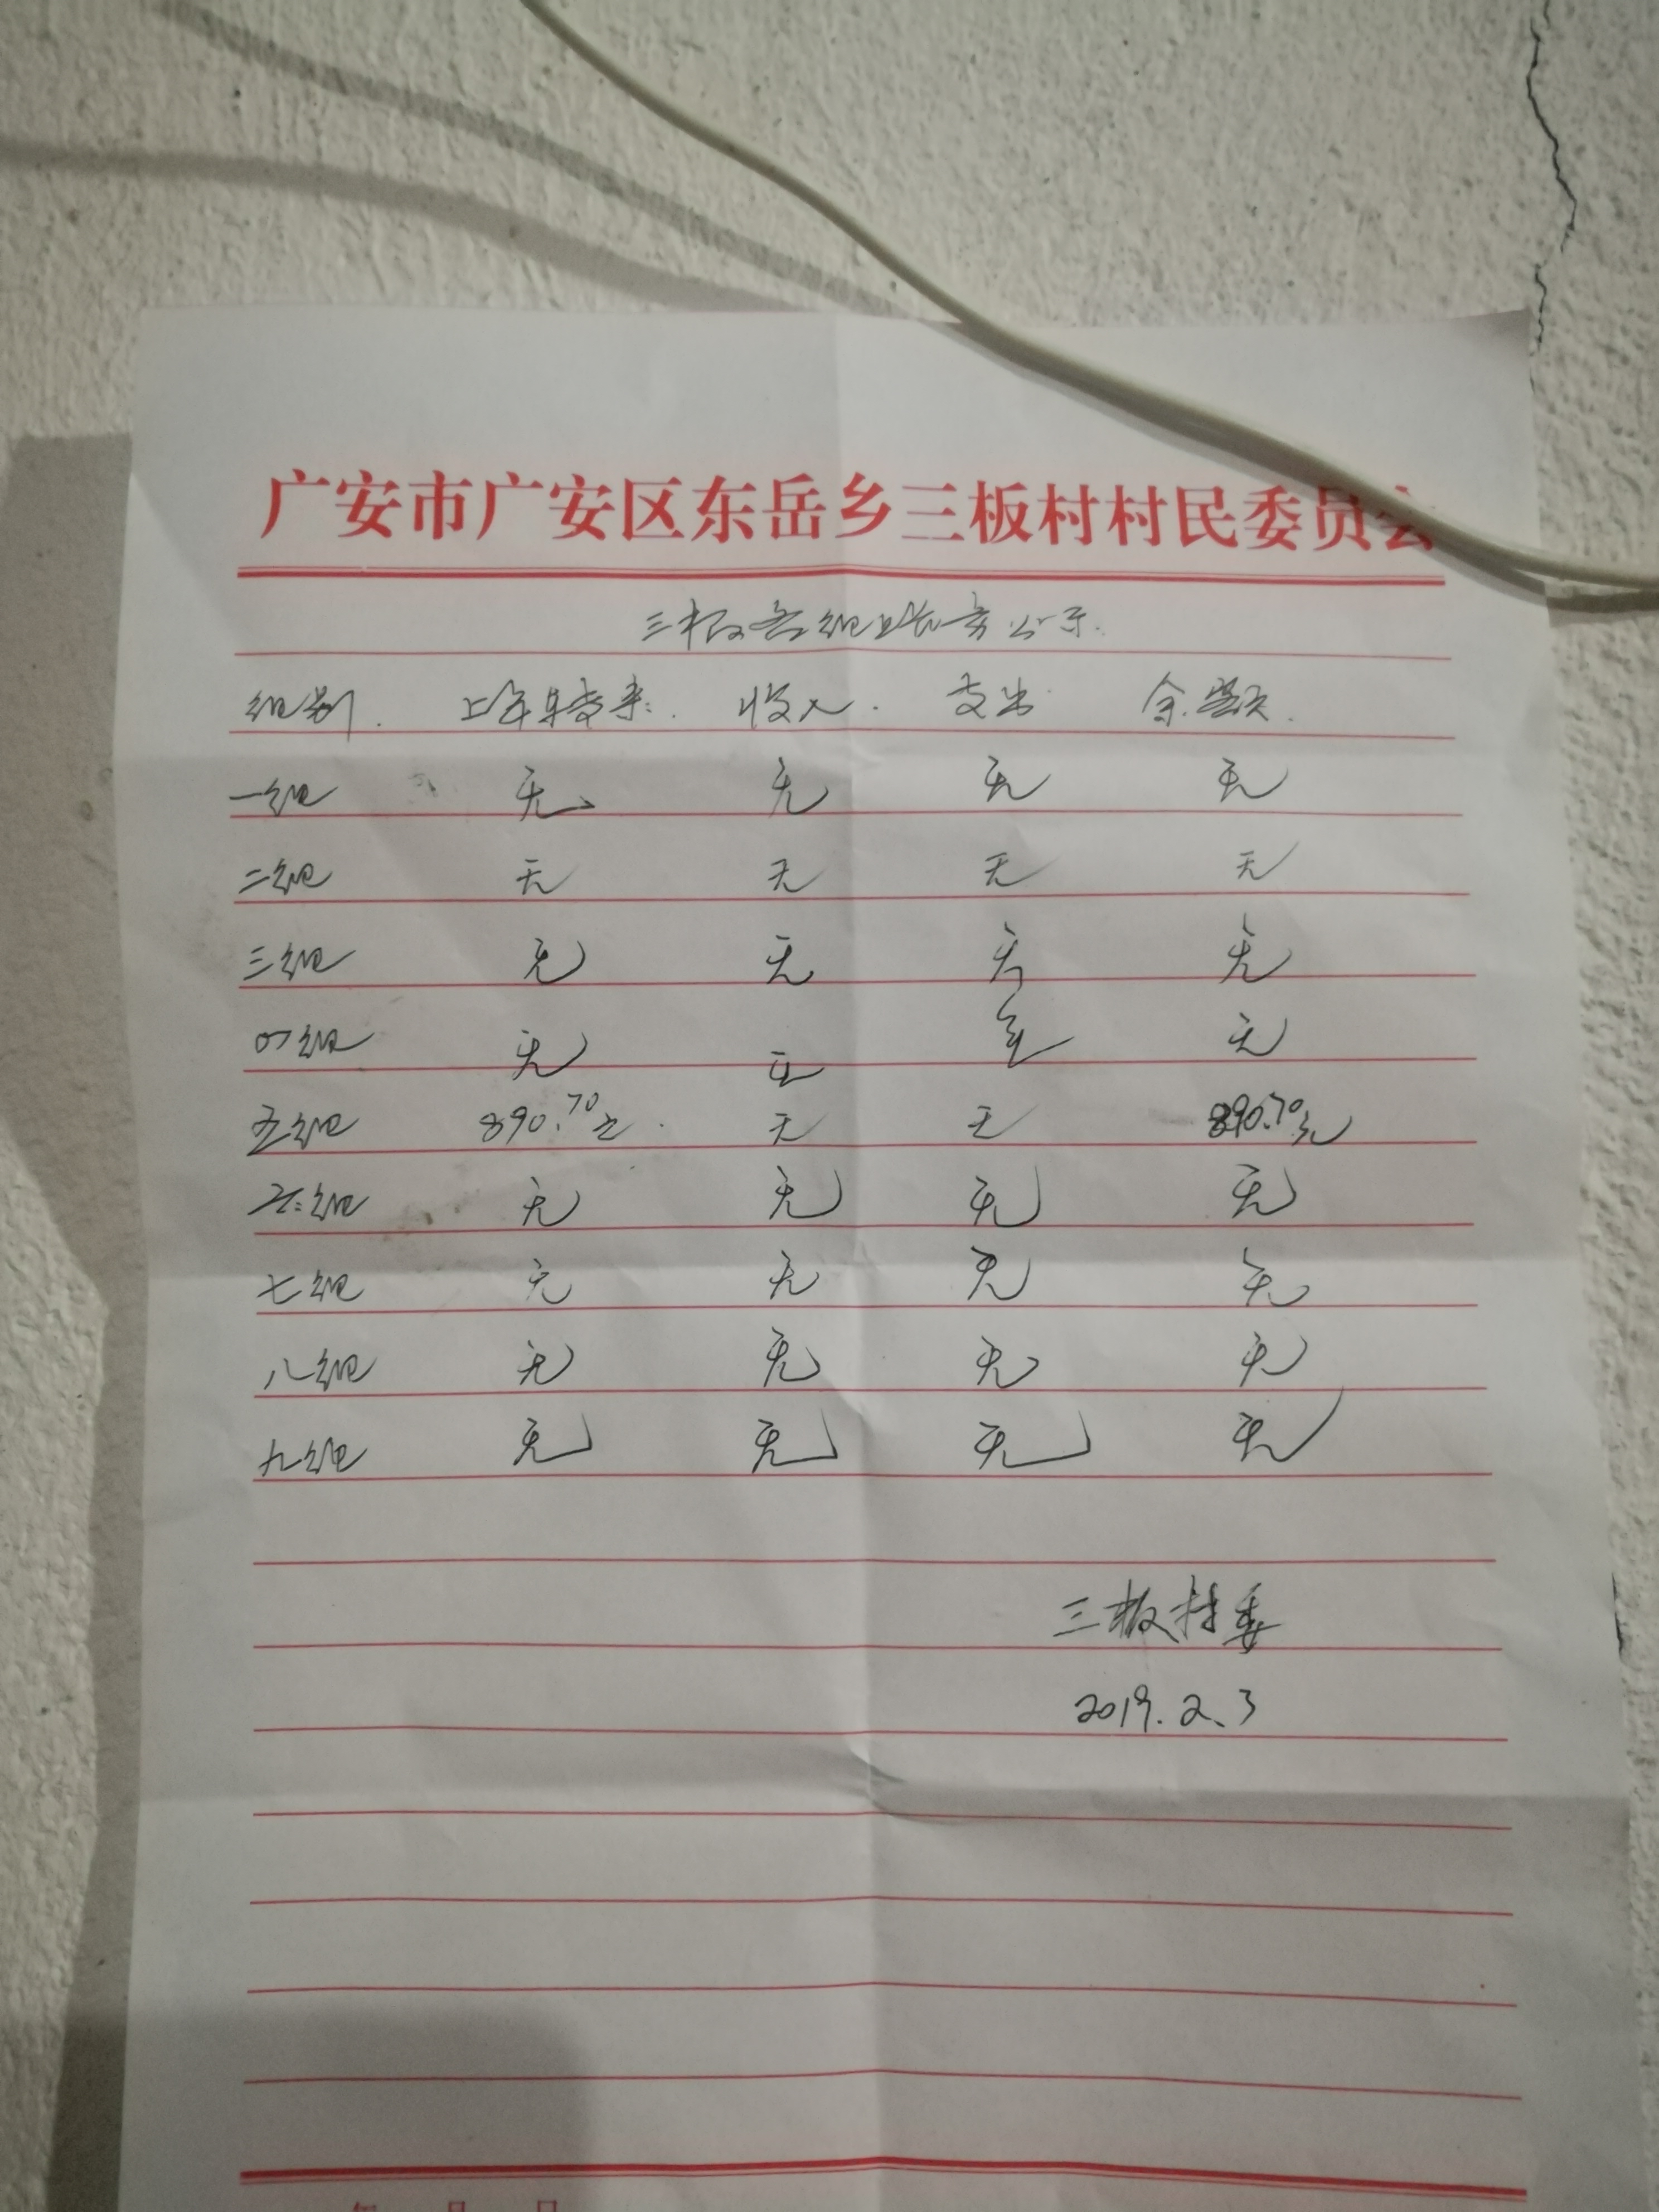 广安市广安区东岳乡三板村村民委员会
三板各组账务公示.
组别. 上年结转来. 收入. 支出 余额.
一组 无 无 无 无
二组 无 无 无 无
三组 无 无 无 无
四组 无 无 无 无
五组 890.70元. 无 无 890.70元
六组 无 无 无 无
七组 无 无 无 无
八组 无 无 无 无
九组 无 无 无 无
三板村委
2019.2.3
年 月 日